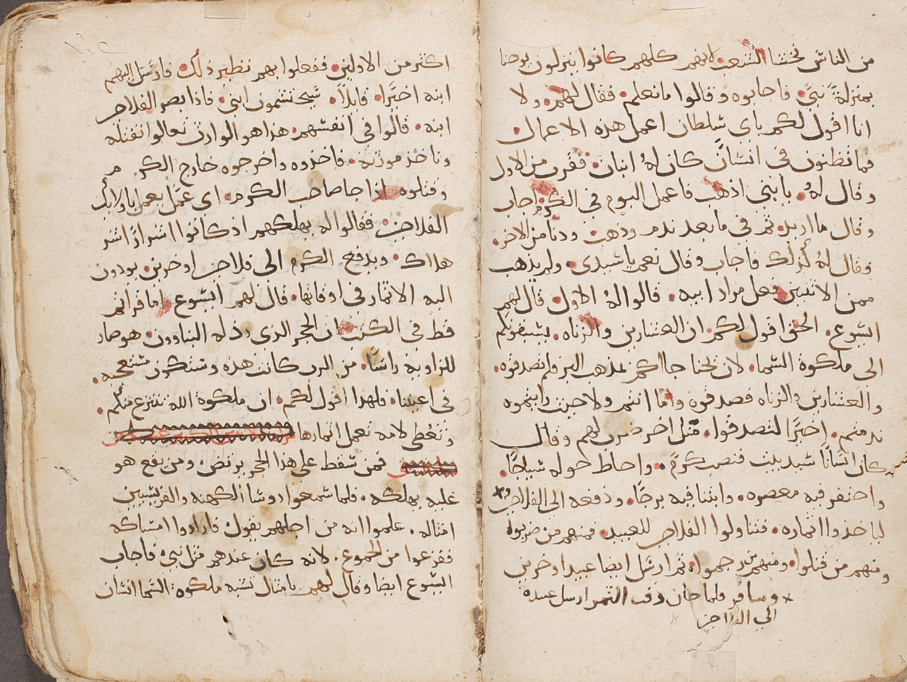 من الناس نخشا الشعب لانهم كلهم كانوا ينزلون يوحنا
بمنزلة نبي فاجابوه وقالوا ما نعلم فقال لهم ولا
انا اقول لكم باي سلطان اعمل هذه الاعمال
فما تظنون في انسان كان له ابنان فقرب من الاول
وقال له يا بني اذهب فاعمل اليوم في الكرم اجاب
وقال ما اريد ثم في ما بعد ندم وذهب ودنا من الاخر
فقال له كذلك فاجاب وقال نعم يا سيدي ولم يذهب
ممن الاثنين فعل مراد ابيه قالوا له الاول قال لهم
ايسوع الحق اقول لكم ان العشارين والزناه يسبقونكم
الى ملكوة السما لان يحنا جاكم بمذهب البر فلم تصدقوه
والعشارين والزناه فصدقوه واما انتم ولا حين رايتموه
ندمتم اخيرا لتصدقوا مثل اخر ضرب لهم وقال
كان انسانا سيد بيت فنصب كرم واحاط حوله سياجا
واحتفر فيه معصره وابتنا فيه برجا ودفعه الى الفلاحين
لياخذوا اثماره فتناولوا الفلاحين للعبيد فمنهم من ضربوه
ومنهم من قتلوا ومنهم من رجموا ثم ارسل ايضا عبيدا اخرين
× وسافر فلما حان وقت الثمر ارسل عبيده
الى الفلاحين
اكثر من الاولين ففعلوا بهم نظير ذلك فارسل اليهم
ابنه اخيرا قايلا سيحتشمون ابني فاذا بصر الفلاحين
ابنه قالوا في انفسهم هذا هو الوارث تعالوا نقتله
وناخذ مورثه فاخذوه واخرجوه خارج الكرم
وقتلوه اذا جا صاحب الكرم اي عمل يعمل باولايك
الفلاحين فقالوا له يهلكهم اذ كانوا اشرارا اشر
هلاك ويدفع الكرم الى فلاحين اخرين يودون
اليه الاثمار في اوقاتها قال لهم ايسوع اما قراتم
قط في الكتب ان الحجر الذي رذله البناوون هو صار
للزاويه راسا من الرب كانت هذه وستكون متعجبه
في اعيننا ولهذا اقول لكم ان ملكوة الله تنتزع منكم
وتعطى لامه تعمل اثمارها
فمن سقط على هذا الحجر يرتض ومن يقع هو
عليه يهلكه فلما سمعوا روسا الكهنه والفريسيين
امثاله علموا انه من اجلهم يقول فارادوا امساكه
ففزعوا من الجموع لانه كان عندهم مثل نبي فاجاب
ايسوع ايضا وقال لهم بامثال تشبه ملكوة السما انسان